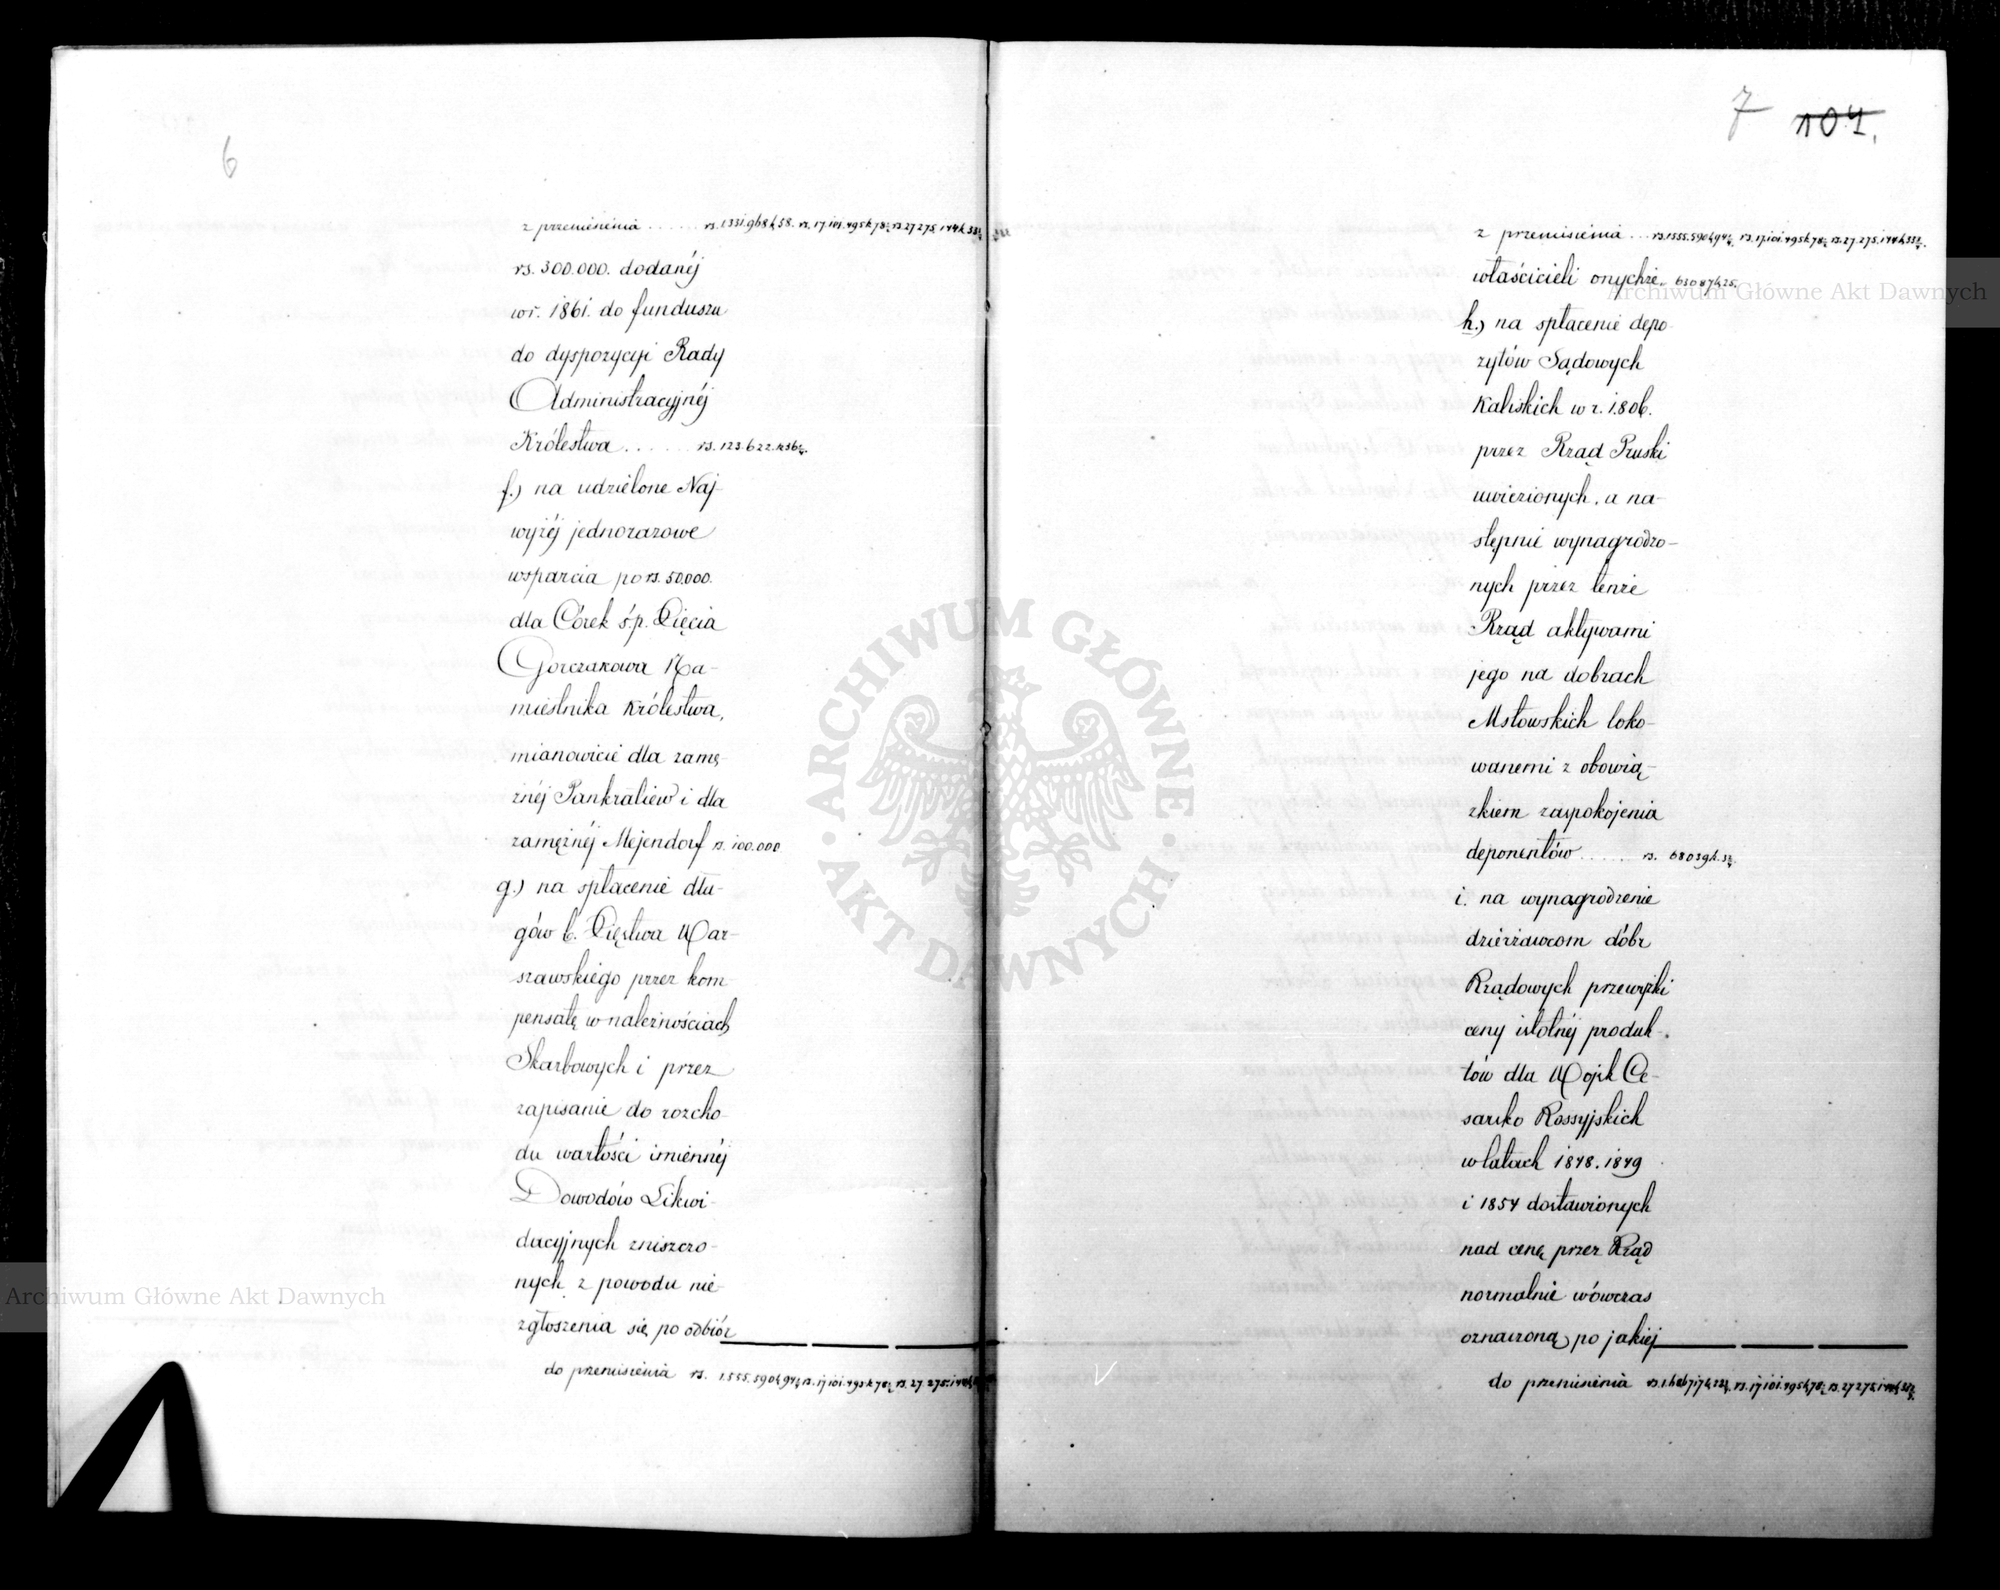 6
z przeniesienia . . . . . . rs. 1.331.968 k. 58. rs. 17.101.495 k. 78½ rs. 27.275.144 k. 33½
rs. 300.000. dodanéj
w r. 1861. do funduszu
do dyspozycyi Rady
Administracyjnéj
Królestwa . . . . . . rs. 123.622. k. 36½.
f.) na udzielone Naj-
wyżéj jednorazowe
wsparcia po rs. 50.000.
dla Córek ś.p. Xięcia
Gorczakowa Na-
miestnika Królestwa,
mianowicie dla zamę-
żnéj Pankratiew i dla
zamężnéj Mejendorf rs. 100.000.
g.) na spłacenie dłu-
gów b. Xięstwa War-
szawskiego przez kom-
pensatę w należnościach
Skarbowych i przez
zapisanie do rozcho-
du wartości imiennéj
Dowodów Likwi-
dacyjnych zniszczo-
nych z powodu nie-
zgłoszenia się po odbiór
do przeniesienia rs. 1.555.590 k. 94½ rs. 17.101.495 k. 78½ rs. 27.275.144 k.
7 101.
z przeniesienia . . . rs. 1.555.590 k. 94½ rs. 17.101.495 k. 78½ rs. 27.275.144 k. 33½.
właścicieli onychże. 63087 k. 25.
h.) na spłacenie depo-
zytów Sądowych
Kaliskich w r. 1806.
przez Rząd Pruski
uwiezionych, a na-
stępnie wynagrodzo-
nych przez tenże
Rząd aktywami
jego na dobrach
Mstowskich loko-
wanemi z obowią-
zkiem zaspokojenia
deponentów . . . . . . rs. 68039 k. 3½.
i. na wynagrodzenie
dzierżawcom dóbr
Rządowych przewyżki
ceny istotnéj produk-
tów dla Wojsk Ce-
sarsko Rossyjskich
w latach 1848. 1849
i 1854 dostawionych
nad cenę przez Rząd
normalnie wówczas
oznaczoną, po jakiej
do przeniesienia rs. 1.686.717 k. 23½ rs. 17.101.495 k. 78½ rs. 27.275.144 k. 33½.
ARCHIWUM GŁÓWNE AKT DAWNYCH
Archiwum Główne Akt Dawnych
Archiwum Główne Akt Dawnych